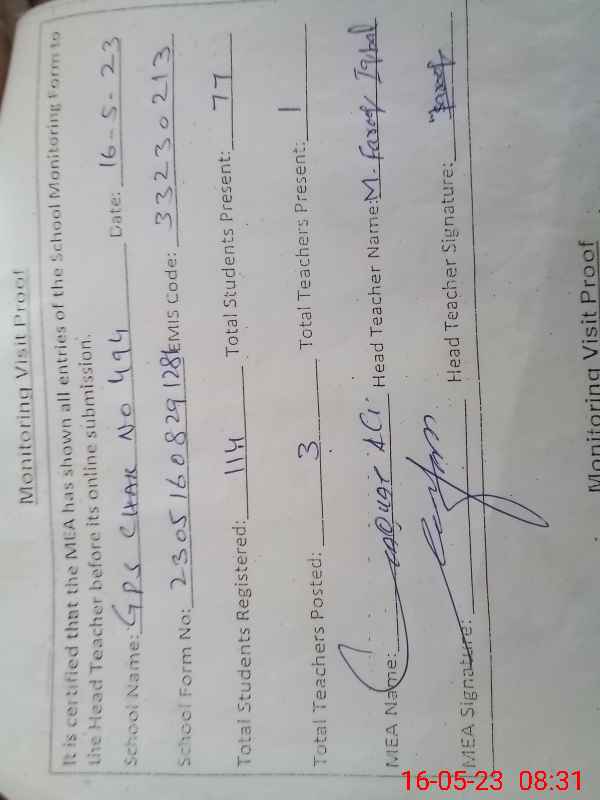 Monitoring Visit Proof
It is certified that the MEA has shown all entries of the School Monitoring Form to
the Head Teacher before its online submission.
School Name: GPS CHAK NO 494 Date: 16-5-23
School Form No: 2305160829128 EMIS Code: 33230213
Total Students Registered: 114 Total Students Present: 77
Total Teachers Posted: 3 Total Teachers Present: 1
MEA Name: ALi Head Teacher Name: M. Farooq Iqbal
MEA Signature: Head Teacher Signature: Farooq
Monitoring Visit Proof
16-05-23 08:31